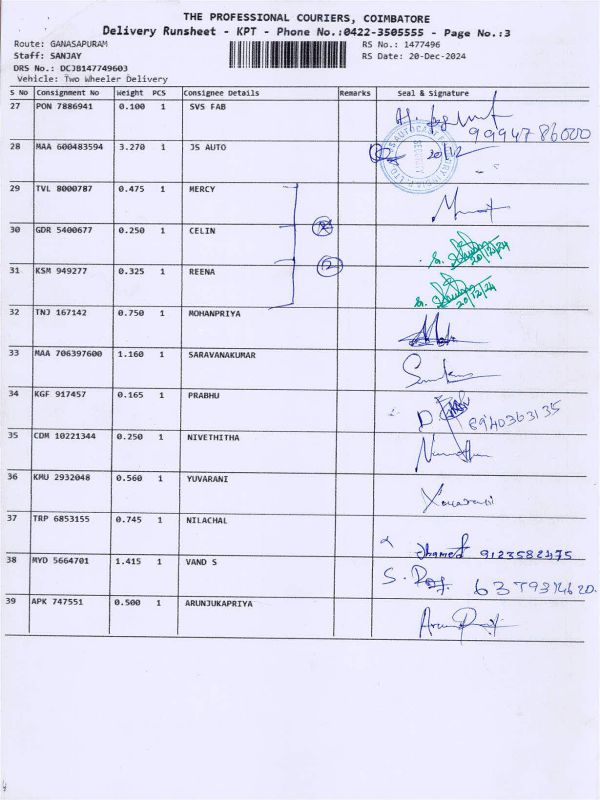 THE PROFESSIONAL COURIERS, COIMBATORE
Delivery Runsheet - KPT - Phone No.:0422-3505555 - Page No.:3
Route: GANASAPURAM RS No.: 1477496
Staff: SANJAY RS Date: 20-Dec-2024
DRS No.: DCJB147749603
Vehicle: Two Wheeler Delivery
S No Consignment No Weight PCS Consignee Details Remarks Seal & Signature
27 PON 7886941 0.100 1 SVS FAB
9994786000
28 MAA 600483594 3.270 1 JS AUTO 20/12
29 TVL 8000787 0.475 1 MERCY
30 GDR 5400677 0.250 1 CELIN
20/12/24
31 KSM 949277 0.325 1 REENA
20/12/24
32 TNJ 167142 0.750 1 MOHANPRIYA
33 MAA 706397600 1.160 1 SARAVANAKUMAR
34 KGF 917457 0.165 1 PRABHU
6940363135
35 CDM 10221344 0.250 1 NIVETHITHA
36 KMU 2932048 0.560 1 YUVARANI
Yovarani
37 TRP 6853155 0.745 1 NILACHAL
9123582475
38 MYD 5664701 1.415 1 VAND S
S. Raj.
39 APK 747551 0.500 1 ARUNJUKAPRIYA